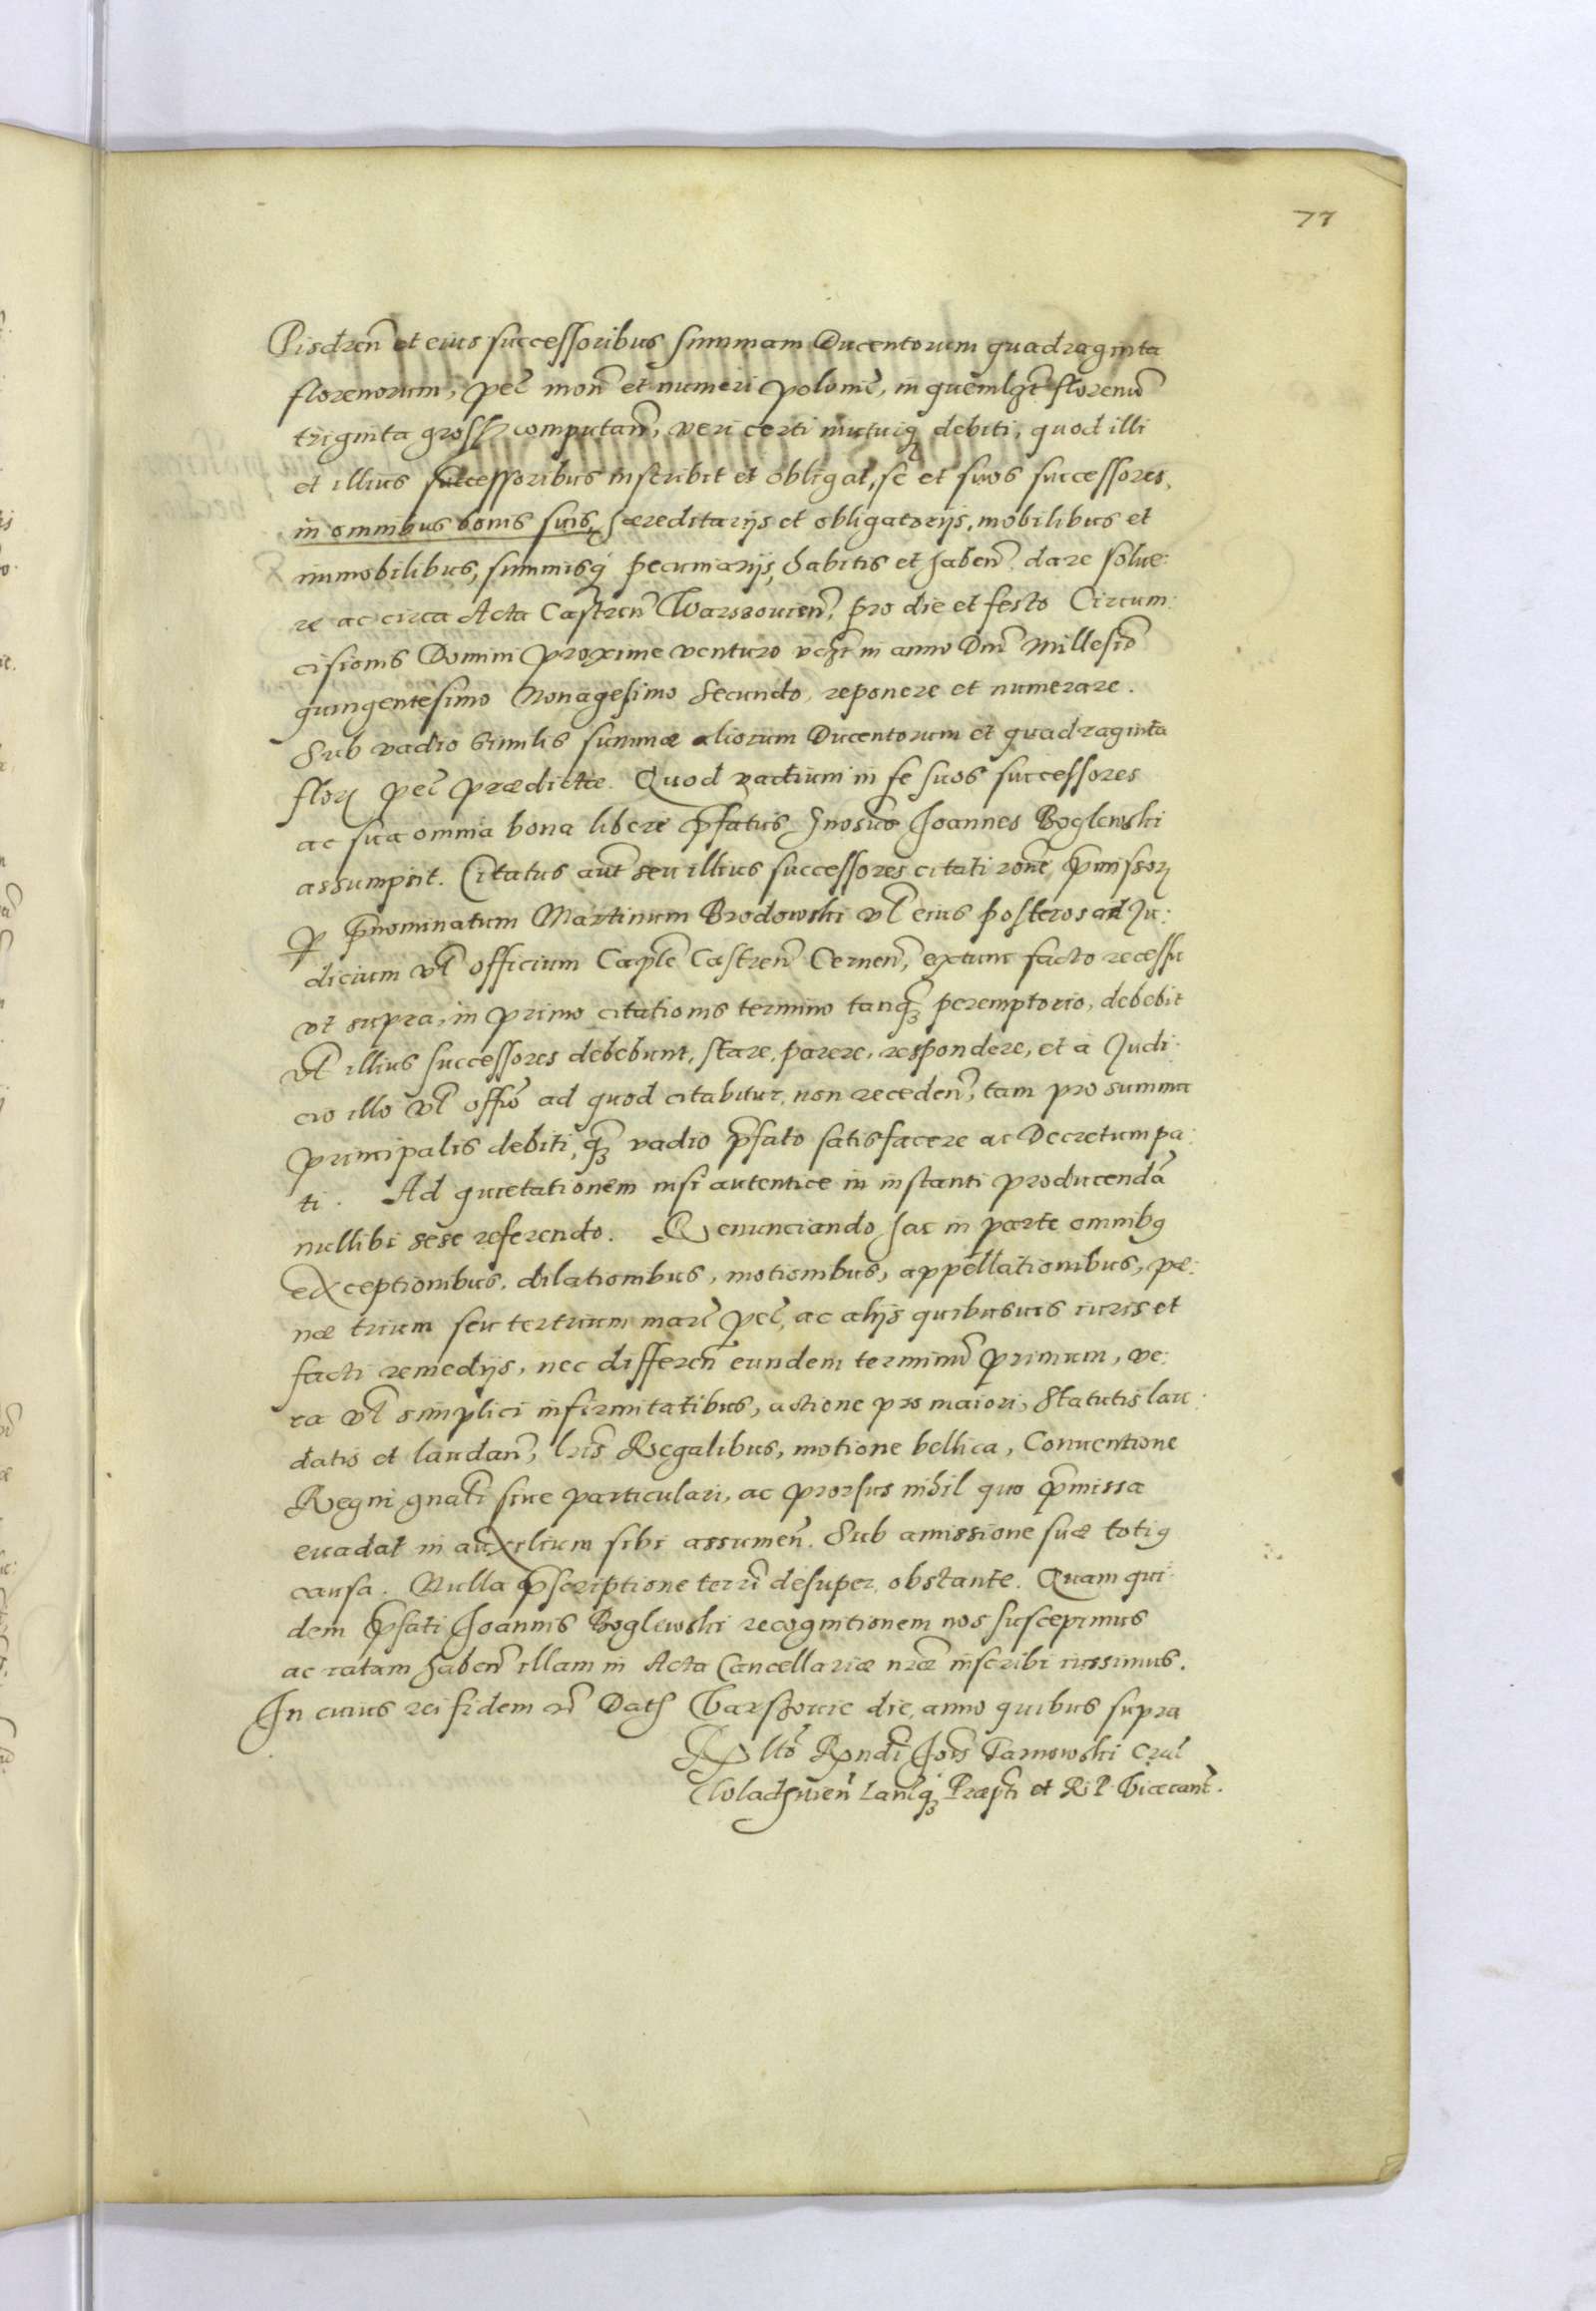 77
Pisdren̄ et eius successoribus summam Ducentorum quadraginta
florenorum, pec̄ mon̄ et numeri polonic̄, in quemlᵹt florenū
triginta gross computan̄, veri certi mutuiq̷ debiti, quod illi
et illius successoribus inscribit et obligat, se et suos successores,
in omnibus bonis suis, haereditarijs et obligatorijs, mobilibus et
immobilibus, summisq̷ pecuniarijs, habitis et haben̄ dare solue:
re ac circa Acta Castren̄ Warssouien̄, pro die et festo Circum:
cisionis Domini proxime venturo vᵹt in anno Dnī Millesiō
quingentesimo Nonagesimo Secundo, reponere et numerare.
Sub vadio similis summae aliorum Ducentorum et quadraginta
flor pec̄ praedictae. Quod vadium in se suos successores
ac sua omnia bona libere pfatus Gnosus Joannes Boglewski
assumpsit. Citatus aūt seu illius successores citati rōne p̄missor
P p̄nominatum Martinum Brodowski vl̄ eius posteros ad Ju:
dicium vl̄ officium Caplē Castren̄ Cernen̄, extunc facto recessu
vt supra, in primo citationis termino tanq̷ peremptorio, debebit
vl̄ illius successores debebunt, stare, parere, respondere, et a Judi:
cio illo vl̄ offiō ad quod citabitur, non receden̄, tam pro summa
principalis debiti, q̷ vadio p̄fato satisfacere ac Decretum pa:
ti. Ad quietationem nisi autentice in instanti producendā
nullibi sese referendo. Renunciando hac in parte omnibq
exceptionibus, dilationibus, motionibus, appellationibus, pae:
nae trium seu tertium marc̄ pec̄, ac alijs quibusuis iuris et
facti remedijs, nec differen̄ eundem terminū primum, ve:
ra vl̄ simplici infirmitatibus, actione pro maiori, Statutis lau:
datis et laudan̄, lris̄ Regalibus, motione bellica, Conuentione
Regni gnalī siue particulari, ac prorsus nihil quo p̄missa
euadat in auxilium sibi assumen̄. Sub amissione suae totiq
causa. Nulla p̄scriptione terrī desuper obstante. Quam qui:
dem p̄fati Joannis Boglewski recognitionem nos suscepimus
ac ratam haben̄ illam in Acta Cancellariae nrae inscribi iussimus.
In cuius rei fidem Dat Varssouie die, anno quibus supra
R ltō Rᵱndi Joīs Tarnowski Cral
Wladisuien̄ Lancq̷ Praepti et R P Vicecanc̄.